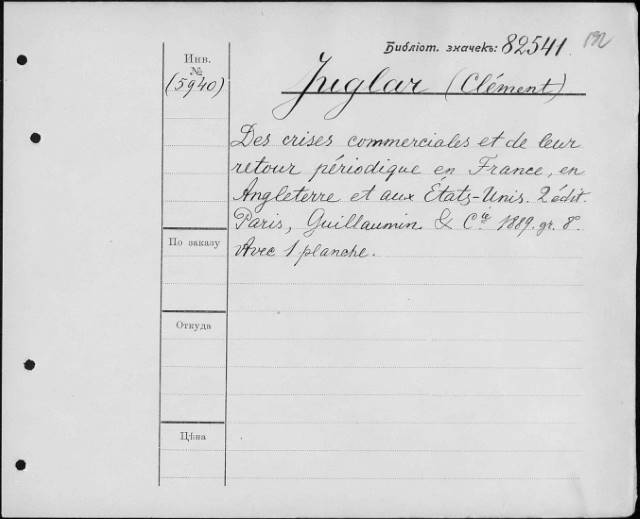 Библіот. значекъ: 82541
Инв.
№
(5940)
Juglar (Clément)
Des crises commerciales et de leur
retour périodique en France, en
Angleterre et aux États-Unis. 2 édit.
Paris, Guillaumin & Cie 1889. gr. 8º.
Avec 1 planche.
По заказу
Откуда
Цѣна